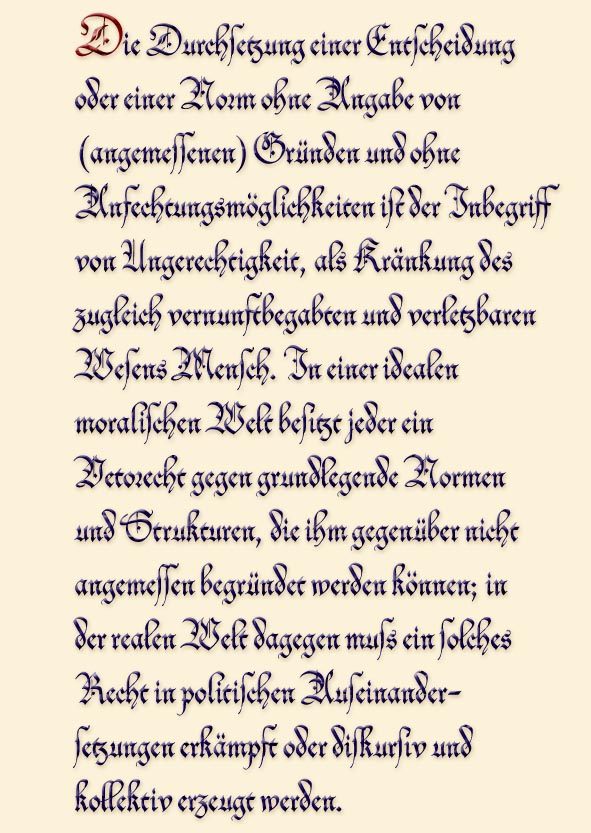 Die Durchſetzung einer Entſcheidung
oder einer Norm ohne Angabe von
(angemeſſenen) Gründen und ohne
Anfechtungsmöglichkeiten iſt der Inbegriff
von Ungerechtigkeit, als Kränkung des
zugleich vernunftbegabten und verletzbaren
Weſens Menſch. In einer idealen
moraliſchen Welt beſitzt jeder ein
Vetorecht gegen grundlegende Normen
und Strukturen, die ihm gegenüber nicht
angemeſſen begründet werden können; in
der realen Welt dagegen muſs ein ſolches
Recht in politiſchen Auſeinander-
ſetzungen erkämpft oder diſkurſiv und
kollektiv erzeugt werden.